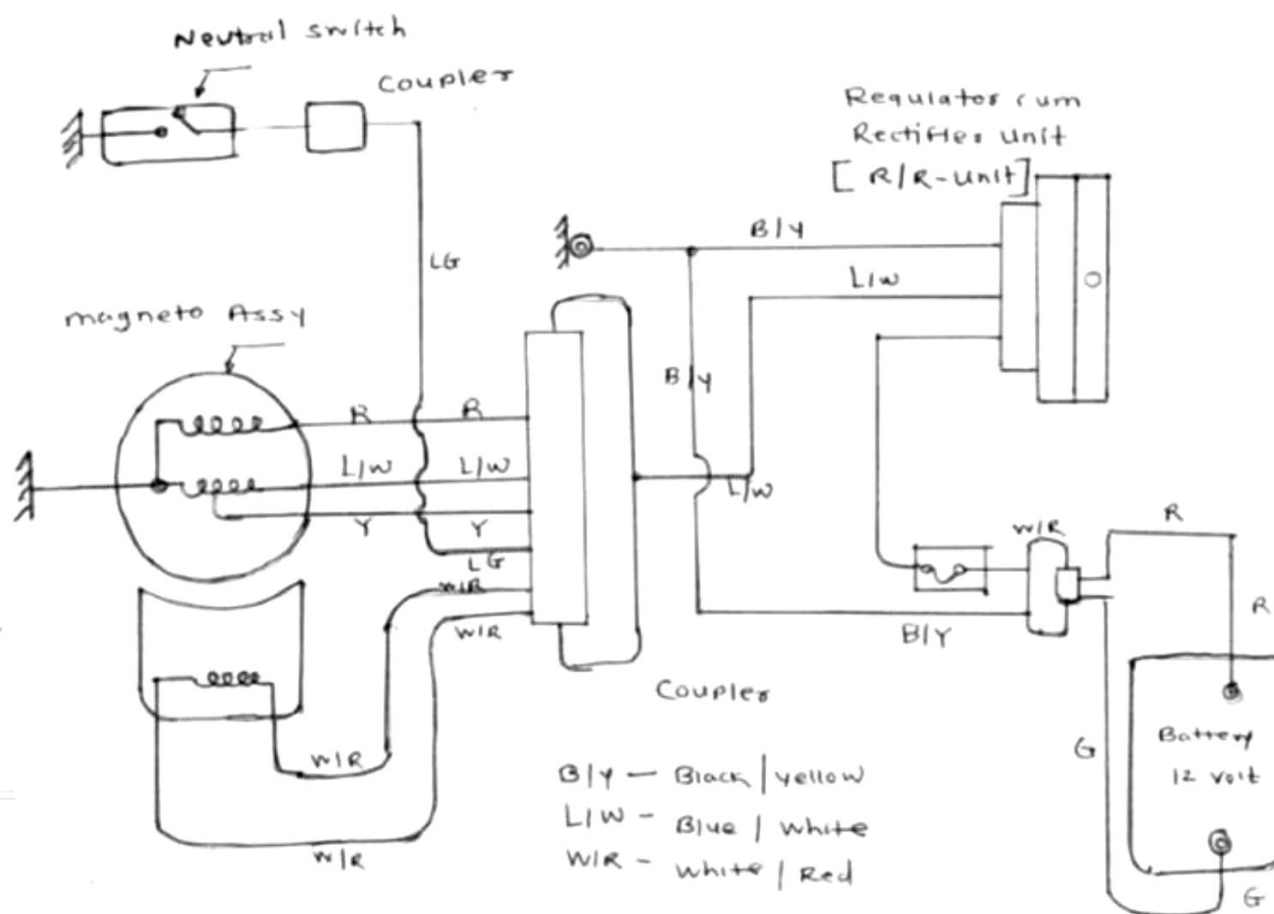 Neutral switch
Coupler
Regulator cum
Rectifier unit
[R/R-unit]
B/Y
L/W
LG
magneto Assy
B/Y
R
R
L/W
L/W
L/W
Y
Y
LG
W/R
W/R
W/R
R
R
B/Y
Coupler
W/R
W/R
G
Battery
12 volt
G
B/Y - Black/yellow
L/W - Blue/White
W/R - White/Red